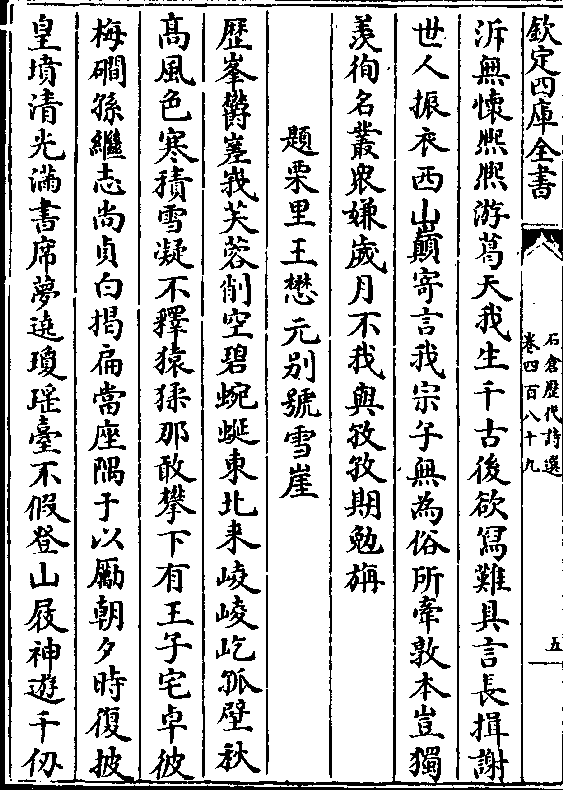 欽定四庫全書
石倉歷代詩選
卷四百八十九
五
泝無懷熈熈游葛天我生千古後欲寫難具言長揖謝
世人振衣西山巔寄言我宗子無為俗所牽敦本豈獨
羨徇名叢衆嫌歲月不我與孜孜期勉旃
題栗里王懋元别號雪崖
歴峯欝嵳峩芙蓉削空碧蜿蜒東北来崚崚屹孤壁秋
髙風色寒積雪凝不釋猿猱那敢攀下有王子宅卓彼
梅磵孫繼志尚貞白掲扁當座隅于以勵朝夕時復披
皇墳清光滿書席夢遶瓊瑶臺不假登山屐神遊千仞